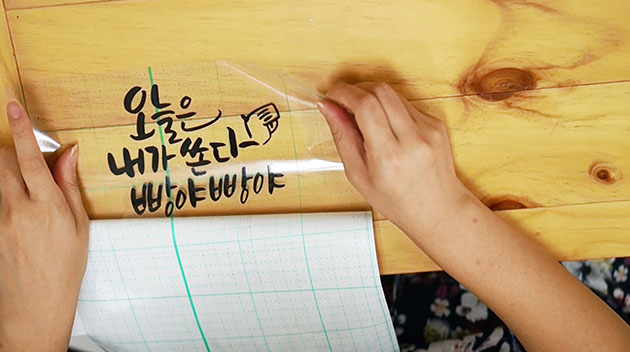 오늘은
내가 쏜다~
빵야빵야